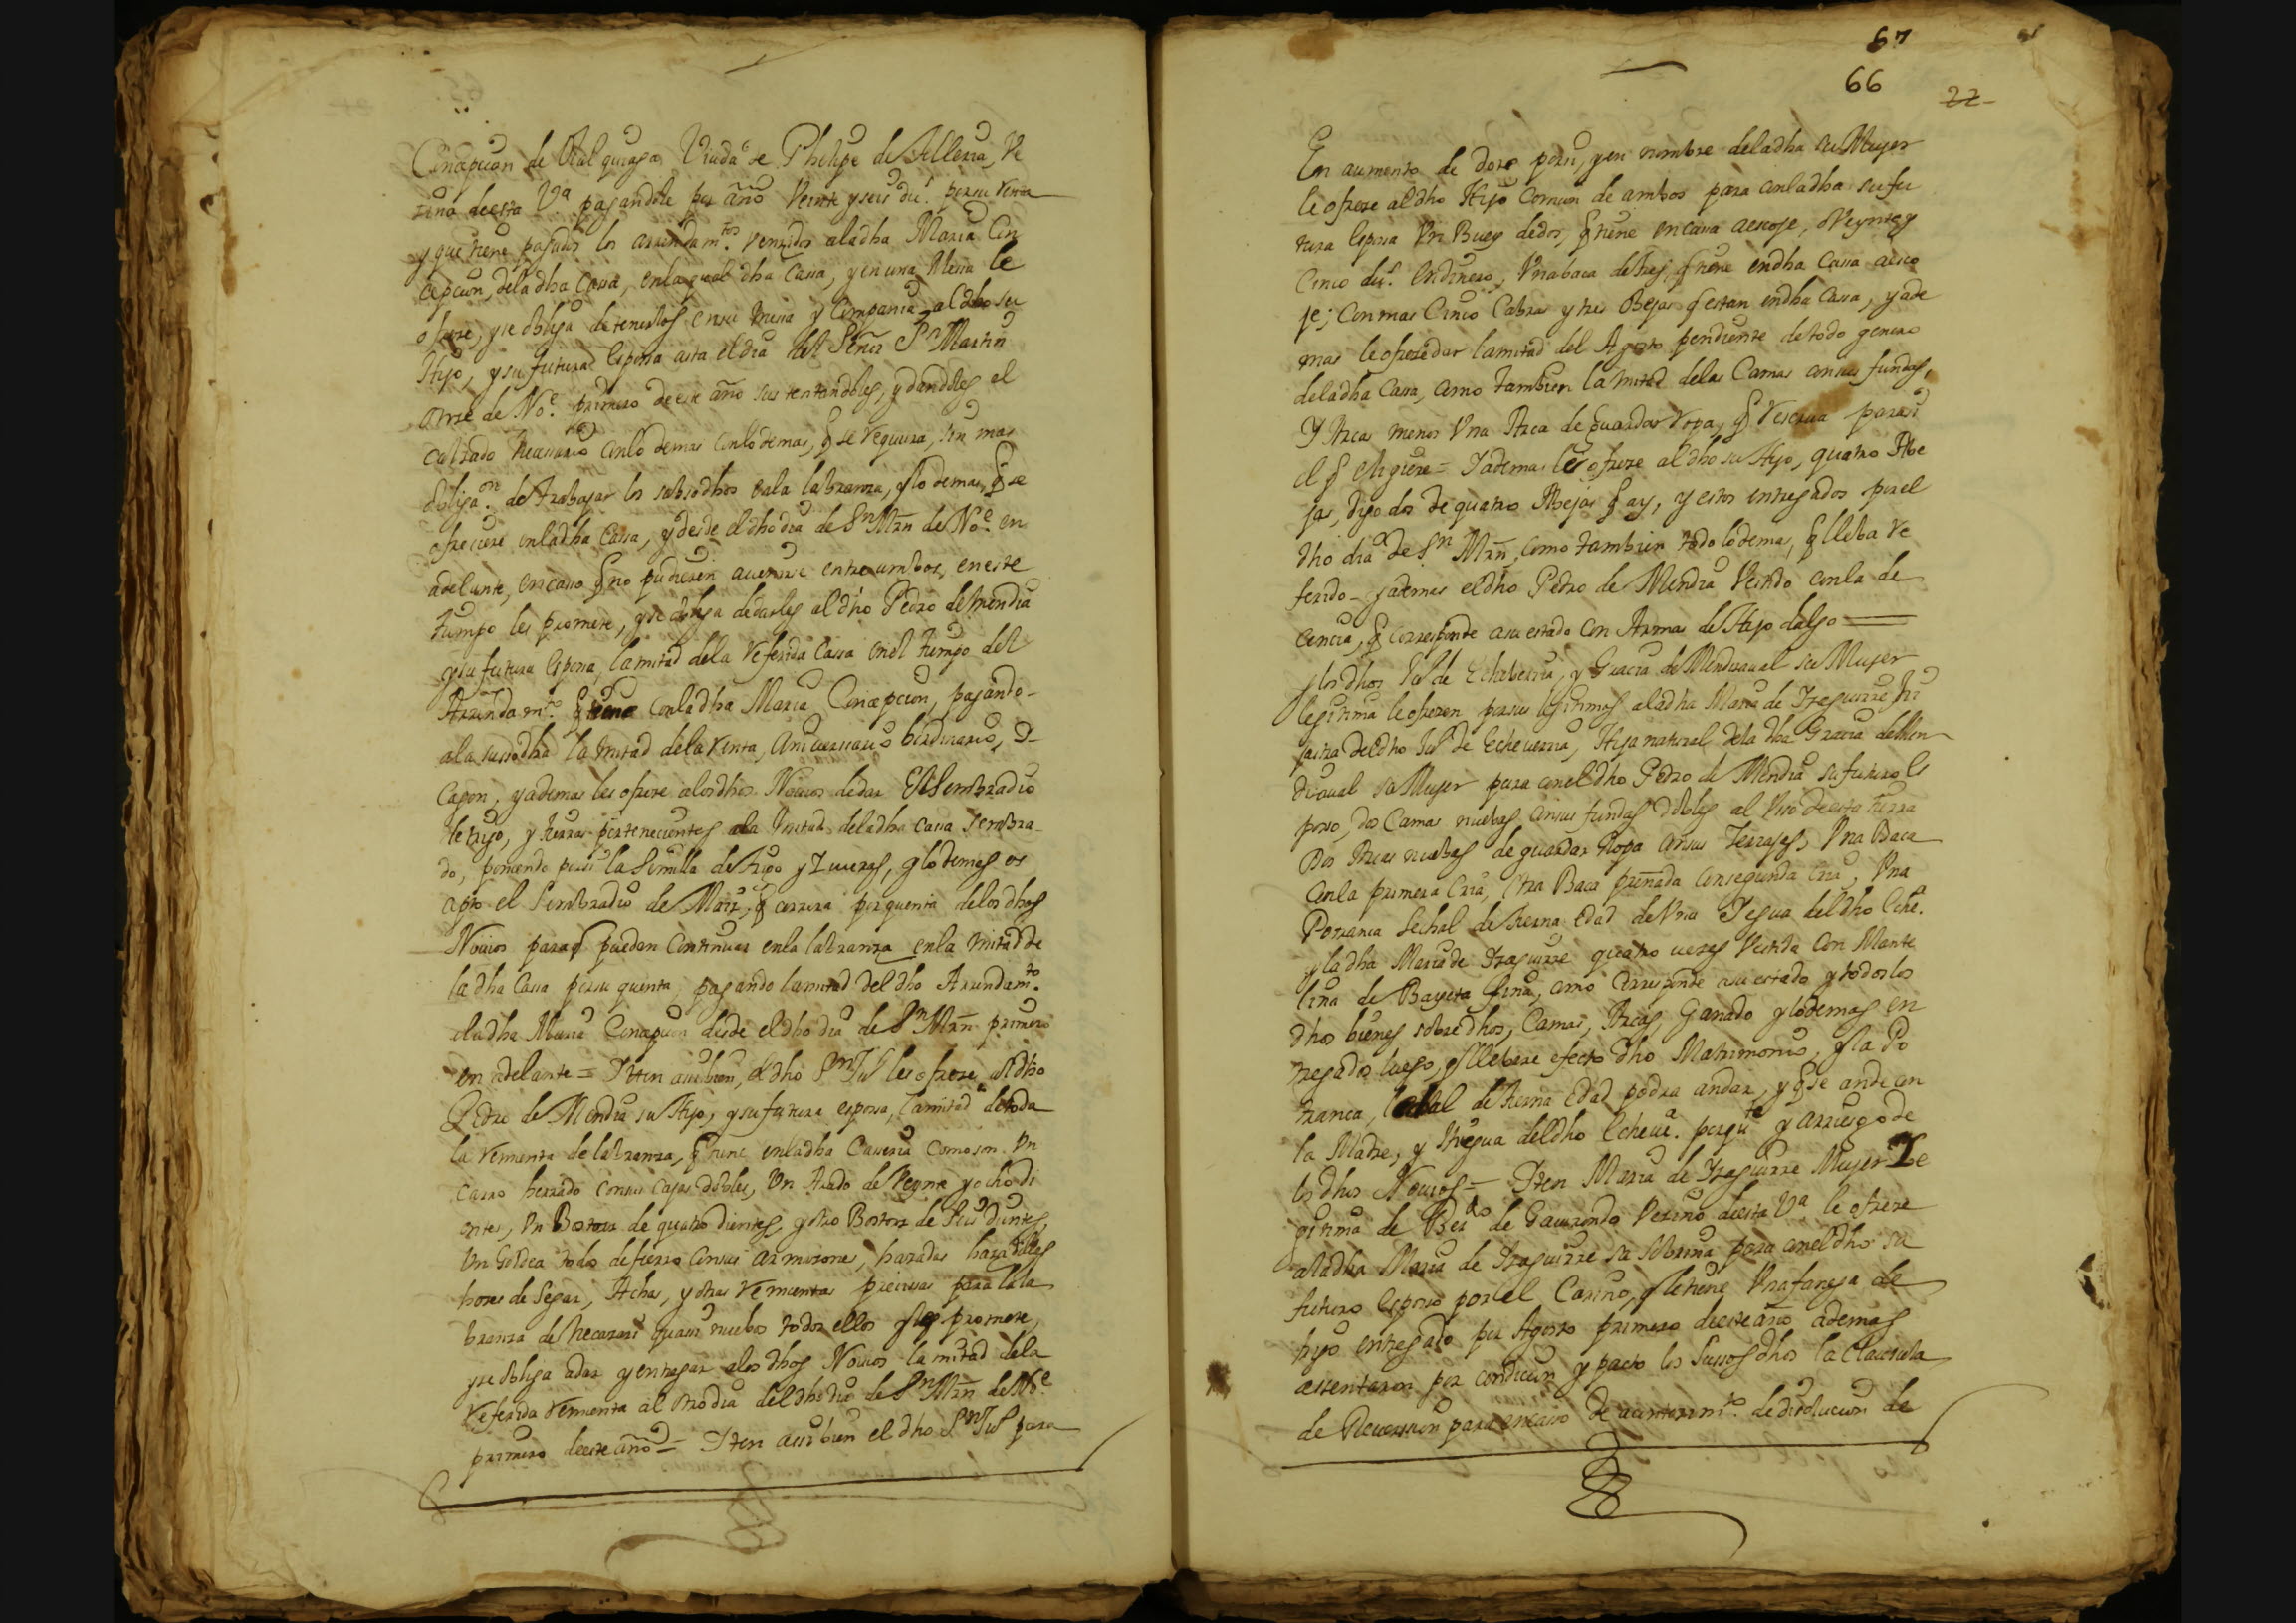 Concepcion de Olalquiaga Viuda de Phelipe de Alleria, Ve
zino de esta Vª pagandole por año Veinte y seis duˢ. por su renta
y que tiene pagados los arrendamᵗᵒˢ. venzidos a la dha Maria Con
cepcion, de la dha Cassa, en la qual dha Cassa, y en una Messa le
ofreze, y se obliga de tenerlos en su messa y Compania al dho su
Hijo, y su futura esposa asta el dia del Señor Sⁿ Martin
onze de Noᵉ. primero de este año sustentandoles, y dandoles el
calzado necessario con lo demas con lo demas, q se requiera, sin mas
obligaᵒⁿ. de trabajar los sobredhos en la labranza, y lo demas, q se
ofreciere en la dha Cassa, y desde el dho dia de Sⁿ Mrñ de Noᵉ. en
adelante, en casso q no pudieren avenirse entre ambos, en este
tiempo les promete, y se obliga de darles al dho Pedro de Mendia
y su futura esposa, la mitad de la referida Cassa en el tiempo del
Arrendamᵗᵒ. q tiene con la dha Maria Concepcion, pagando
a la susodha la mitad de la renta,
Capon, y ademas les ofreze a los dhos Novios de dar el sembradio
de trigo, y tierras pertenecientes a la mitad de la dha cassa sembra
do, poniendo por si la semilla de trigo y lo demas es
cepto el sembradio de Maiz, q correra por quenta de los dhos
Novios para q puedan continuar en la labranza en la mitad de
la dha Cassa por su quenta, pagando la mitad del dho Arrendamᵗᵒ.
a la dha Maria Concepcion desde el dho dia de Sⁿ Mrñ primero
en adelante = Iten assi bien, el dho Sⁿ Juˢ les ofreze al dho
Pedro de Mendia su Hijo, y su futura esposa, la mitad de toda
la rementa de labranza, q tiene en la dha Caseria como son Un
Carro herrado con sus cajas dobles, Un Arado de Veynte y ocho di
entes, Un Bostorz de quatro dientes, y otro Bostorz de seis dientes,
Un Goldea todo de fierro con sus armazones, hazadas hazadilles
hozes de segar, Achas, y otras rementas precissas para la la
branza de nuebos todos ellos y les promete,
y se obliga a dar y entregar a los dhos Novios la mitad de la
referida rementa al otro dia del dho dia de Sⁿ Mrñ de Noᵉ
primero de este año = Iten assi bien el dho Sⁿ Juˢ para
67
66
22
En aumento de dote por si, y en nombre de la dha su Mujer
le ofreze al dho Hijo Comun de ambos para con la dha su fu
tura esposa Un Buey de dos, q tiene en casa a escoje, o Veynte y
cinco duˢ. en dinero, Una baca de tres, q tiene en dha Cassa a esco
je; con mas Cinco Cabras y tres Obejas q estan en dha Cassa, y ade
mas le ofreze dar la mitad del Agosto pendiente de todo genero
de la dha Cassa, como tambien la mitad de las Camas con sus fundas,
Y Arcas menos Una Arca de guardar ropa, q reserva para si
el q eligiere = Y ademas les ofreze al dho su Hijo, quatro Abe
jas, digo dos de quatro Abejas q ay, y estos entregados por el
dho dia de Sⁿ Mrñ, como tambien todo lo demas, q lleba re
ferido y ademas el dho Pedro de Mendia Vestido con la de
cencia, q corresponde a su estado con Armas de Hijo dalgo =
y los dhos Juˢ de Echeberria, y Gracia de Mendizaval su Mujer
legitima le ofrezen por sus legitimas a la dha Maria de Yzaguirre hi
jastra del dho Juˢ de Echeverria, Hija natural de la dha Gracia de Men
dizaval su Mujer para con el dho Pedro de Mendia su futuro es
posso, dos Camas nuebas con sus fundas dobles al Uso de esta tierra
Dos Arcas nuebas de guardar Ropa con sus Zerrajes, Una Baca
con la primera Cria, Otra Baca preñada con segunda Cria, Una
Potranca lechal de tierna Edad de Una Yegua del dho Echeª.
y la dha Maria de Yzaguirre quatro vezes Vestida con Mante
lina de Bayeta fina, como corresponde a su estado y todos los
dhos bienes sobre dhos, Camas, Arcas, Ganado y lo demas en
tregados luego, q llebare efecto dho Matrimonio, y la Po
tranca, lechal de tierna Edad podra andar, y q se ande con
la Madre, y Yegua del dho Echeveª. por quᵗᵃ y arriesgo de
los dhos Novios = Iten Maria de Yzaguirre Mujer Le
gitima de de Gavirondo Vezino de esta Vª le ofreze
a la dha Maria de Yzaguirre su sobrina para con el dho su
futuro esposo por el Cariño, q le tiene Una fanega de
trigo entregado por Agosto primero de este año ademas
assentaron por condicion y pacto los sussodhos la Clausula
de Reversion para en casso de acontezimᵗᵒ. de disolucion de